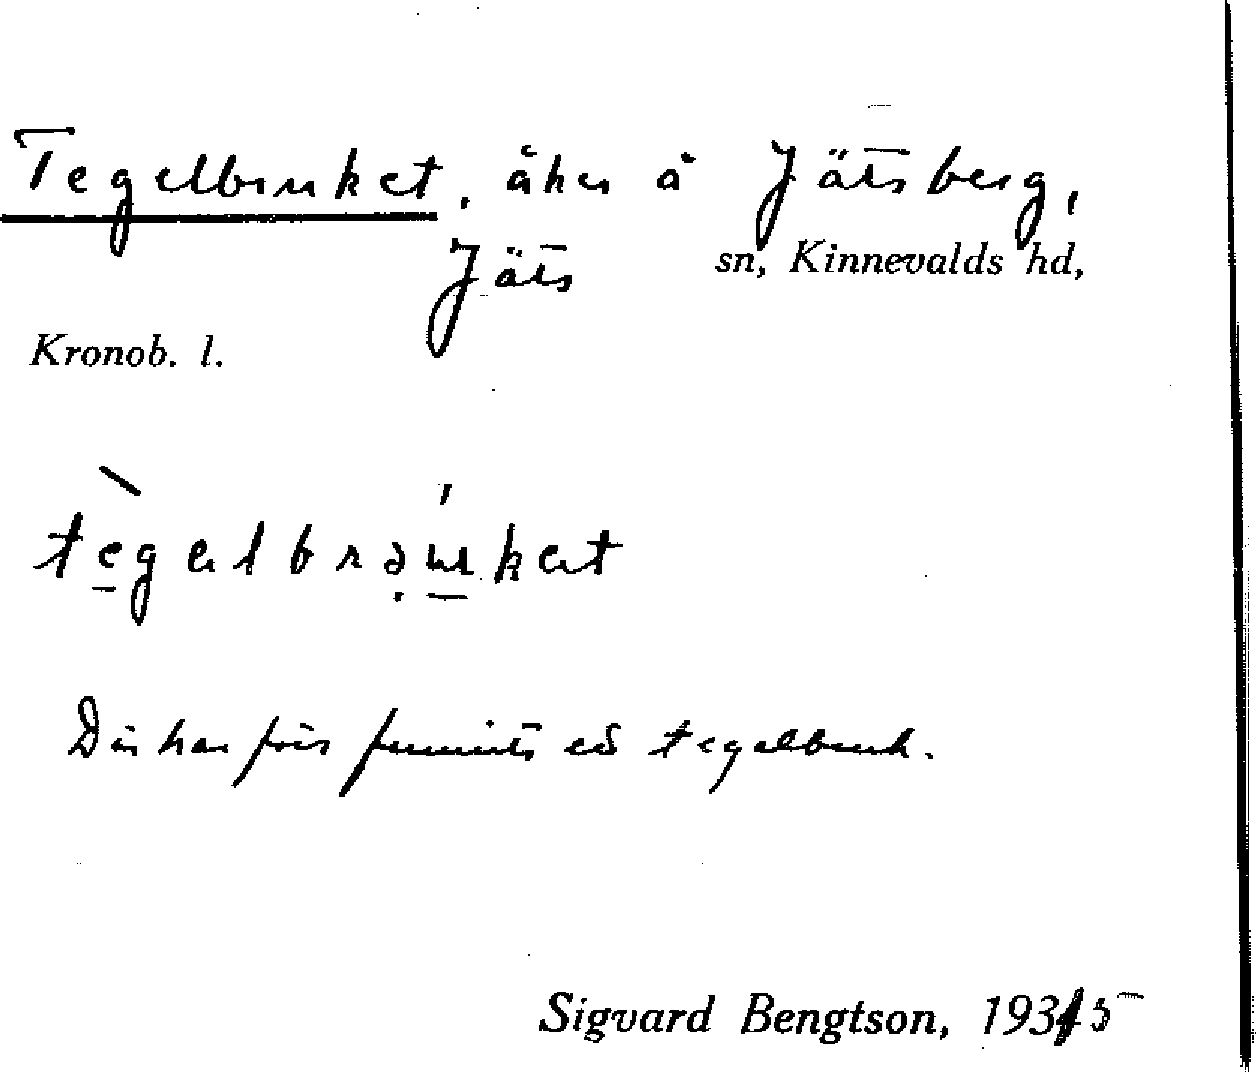 Tegelbruket, åker å Jätsberg,
Jäts sn, Kinnevalds hd,
Kronob. l.
Där har förr funnits ett tegelbruk.
Sigvard Bengtson, 1935